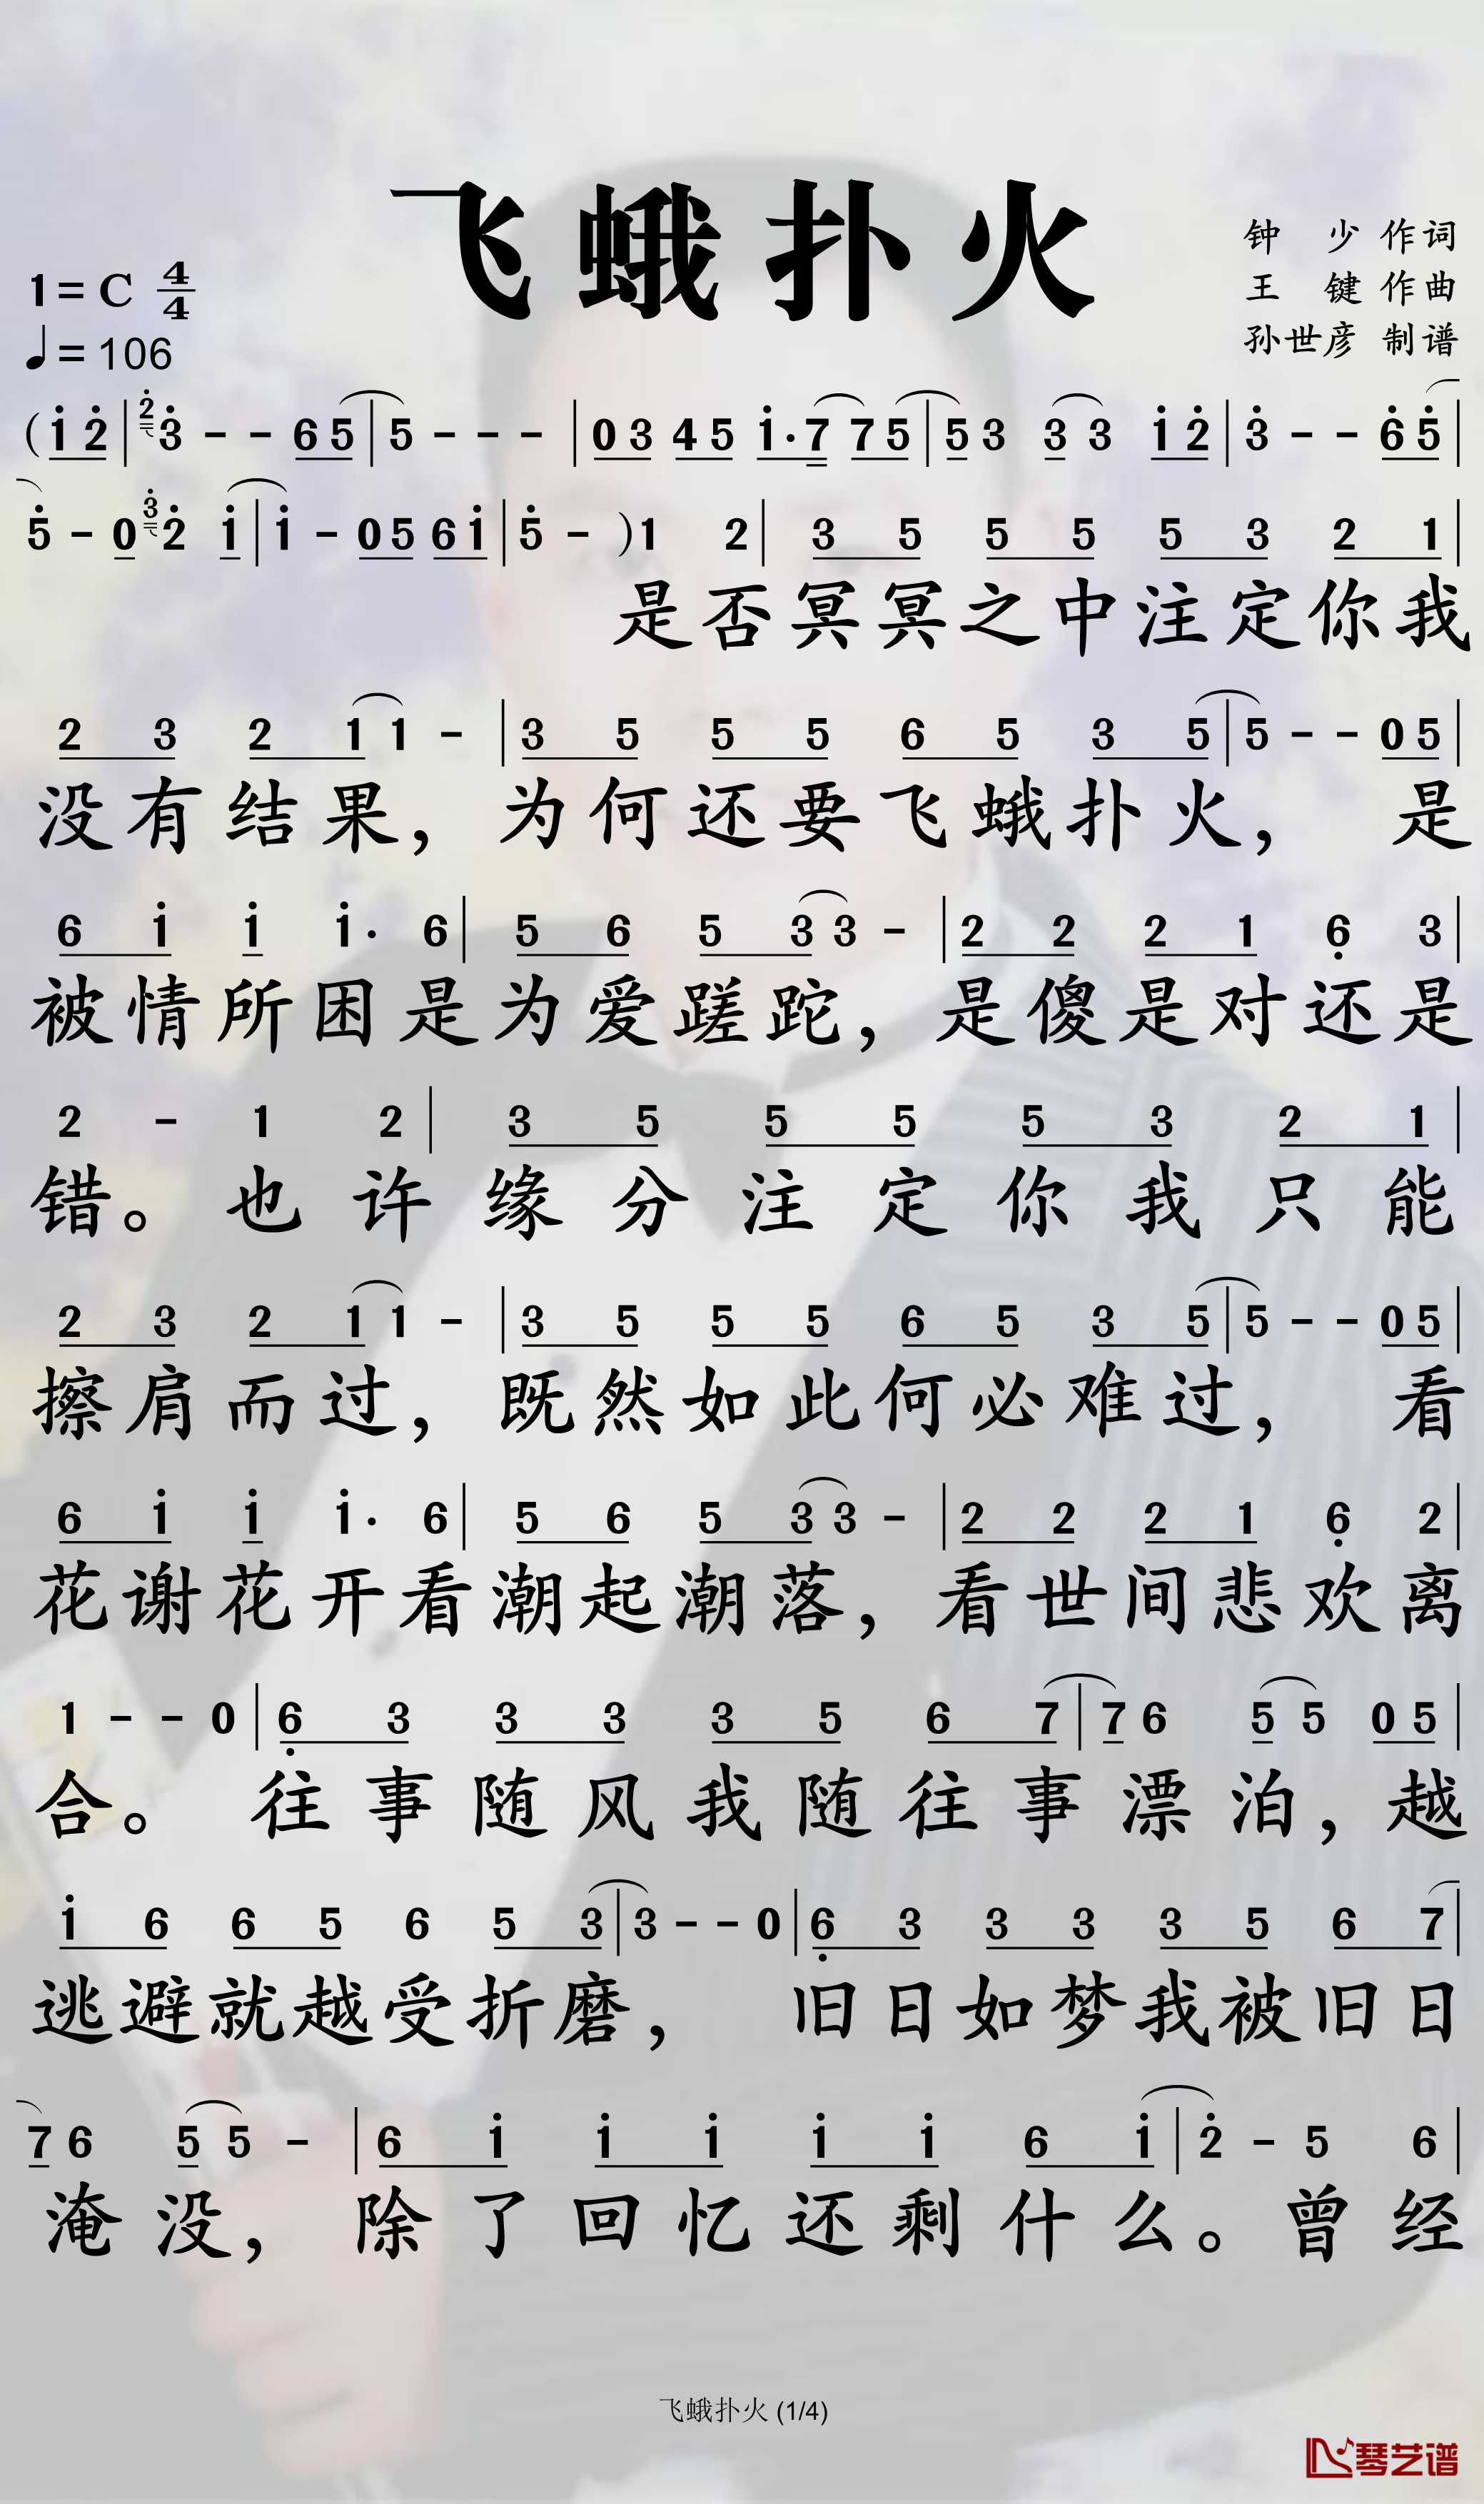 飞蛾扑火
钟 少 作词
王 键 作曲
孙世彦 制谱
1=C 4/4
♩=106
(i̇ 2̇ | 2̇ 3̇ - - 6 5 | 5 - - - | 0 3 4 5 i̇· 7 7 5 | 5 3 3 3 i̇ 2̇ | 3̇ - - 6̇ 5̇ |
5̇ - 0 3̇ 2̇ i̇ | i̇ - 0 5 6 i̇ | 5̇ - ) 1 2 | 3 5 5 5 5 3 2 1 |
是否冥冥之中注定你我
2 3 2 1 1 - | 3 5 5 5 6 5 3 5 | 5 - - 0 5 |
没有结果，为何还要飞蛾扑火， 是
6 i̇ i̇ i̇· 6 | 5 6 5 3 3 - | 2 2 2 1 6̣ 3 |
被情所困是为爱蹉跎，是傻是对还是
2 - 1 2 | 3 5 5 5 5 3 2 1 |
错。也许缘分注定你我只能
2 3 2 1 1 - | 3 5 5 5 6 5 3 5 | 5 - - 0 5 |
擦肩而过，既然如此何必难过， 看
6 i̇ i̇ i̇· 6 | 5 6 5 3 3 - | 2 2 2 1 6̣ 2 |
花谢花开看潮起潮落，看世间悲欢离
1 - - 0 | 6̣ 3 3 3 3 5 6 7 | 7 6 5 5 0 5 |
合。 往事随风我随往事漂泊，越
i̇ 6 6 5 6 5 3 | 3 - - 0 | 6̣ 3 3 3 3 5 6 7 |
逃避就越受折磨， 旧日如梦我被旧日
7 6 5 5 - | 6 i̇ i̇ i̇ i̇ i̇ 6 i̇ | 2̇ - 5 6 |
淹没，除了回忆还剩什么。曾经
飞蛾扑火 (1/4)
琴艺谱